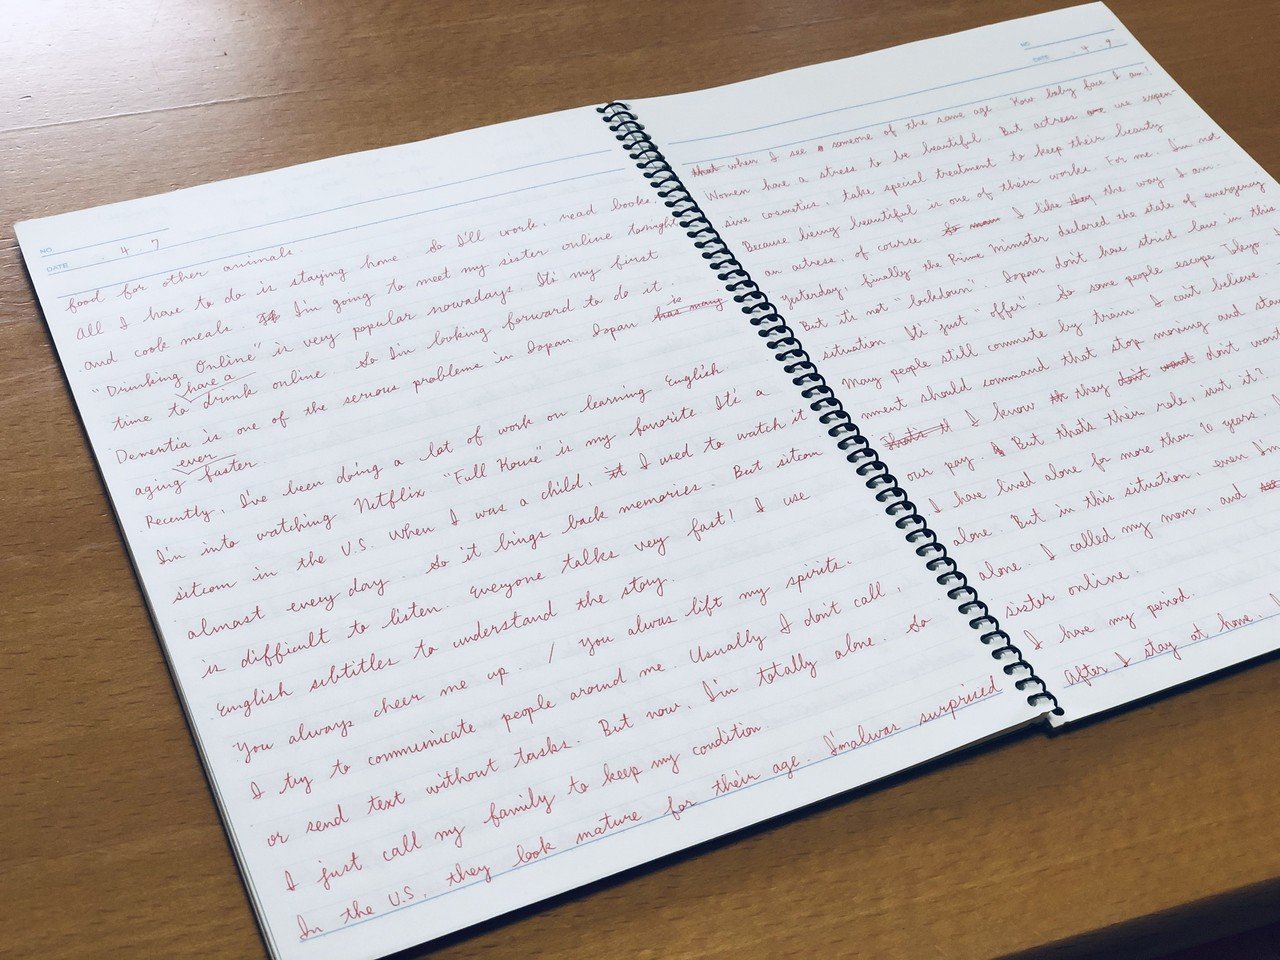 NO.
DATE · 4 · 7
food for other animals
All I have to do is staying home. So I'll work, read books,
and cook meals. I'm going to meet my sister online tonight.
"Drinking Online" is very popular nowadays. It's my first
have a
time to drink online. So I'm looking forward to do it.
is
Dementia is one of the serious problems in Japan. Japan has many
ever
aging faster.
Recently, I've been doing a lot of work on learning English.
I'm into watching Netflix. "Full House" is my favorite. It's a
sitcom in the U.S. When I was a child, it I used to watch it
almost every day. So it brings back memories. But sitcom
is difficult to listen. Everyone talks very fast! I use
English subtitles to understand the story.
You always cheer me up. / You alwas lift my spirits.
I try to communicate people around me. Usually I don't call,
or send text without tasks. But now, I'm totally alone. So
I just call my family to keep my condition.
In the U.S., they look mature for their age. I'm alwas surprised
NO.
DATE · 4 · 9
that when I see a someone of the same age. How baby face I am!
Women have a stress to be beautiful. But actress are use expen-
sive cosmetics, take special treatment to keep their beauty
Because being beautiful is one of their works. For me, I'm not
an actress, of course. So I like they the way I am.
Yesterday, finally the Prime Minister declared the state of emergency
But it's not "lockdown". Japan don't have strict law in this
situation. It's just "offer". So some people escape Tokyo.
Many people still commute by train. I can't believe.
nment should command that stop moving and
That's I know they don't want don't want
our pay. But that's their role, isn't it?
I have lived alone for more than 10 years.
alone. But in this situation, even I'm
alone. I called my mom, and
sister online.
I have my period.
After I stay at home,